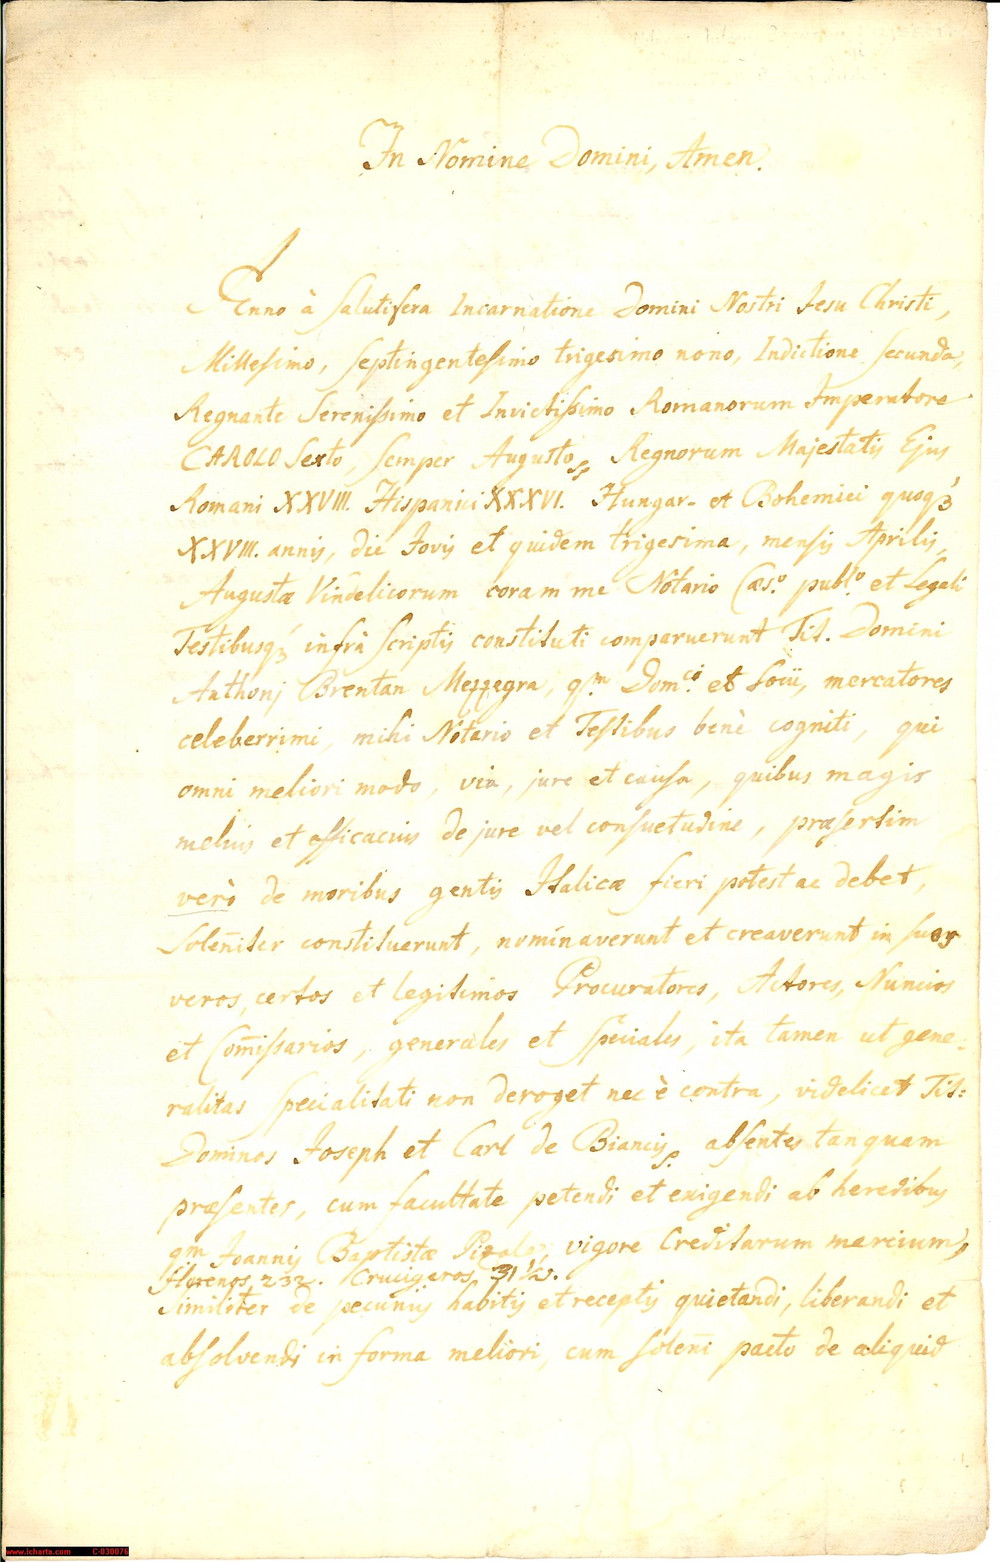 In Nomine Domini, Amen.
Anno à salutifera Incarnatione Domini Nostri Jesu Christi,
Millesimo, septingentesimo trigesimo nono, Indictione secunda,
Regnante Serenissimo et Invictissimo Romanorum Imperatore
CAROLO Sexto, semper Augusto, Regnorum Majestatis Ejus
Romani XXVIII. Hispanici XXXVI. Hungar- et Bohemici quoq3
XXVIII. annis, die Jovis et quidem trigesima, mensis Aprilis,
Augustæ Vindelicorum coram me Notario Cæs.o publ.o et Legali
Testibusq3 infrà scriptis constituti comparuerunt Tit. Domini
Anthonj Brentan Mezzegra, q.m Dom.ci et Socii, mercatores
celeberrimi, mihi Notario et Testibus benè cogniti, qui
omni meliori modo, via, jure et causa, quibus magis
melius et efficacius de jure vel consuetudine, præsertim
verò de moribus gentis Italicæ fieri potest ac debet,
soleniter constituerunt, nominaverunt et creaverunt in suos
veros, certos et legitimos Procuratores, Actores, Nuncios
et Com̄issarios, generales et speciales, ita tamen ut gene-
ralitas specialitati non deroget nec è contra, videlicet Tit:
Dominos Joseph et Carl de Biancis, absentes tanquam
præsentes, cum facultate petendi et exigendi ab heredibus
qm Joannis Baptistæ vigore Creditarum mercium,
florenos 232. Crucigeros 31 1/2.
similiter de pecuniis habitis et receptis quietandi, liberandi et
absolvendi in forma meliori, cum soleni pacto de aliquid
www.icharta.com C-030076